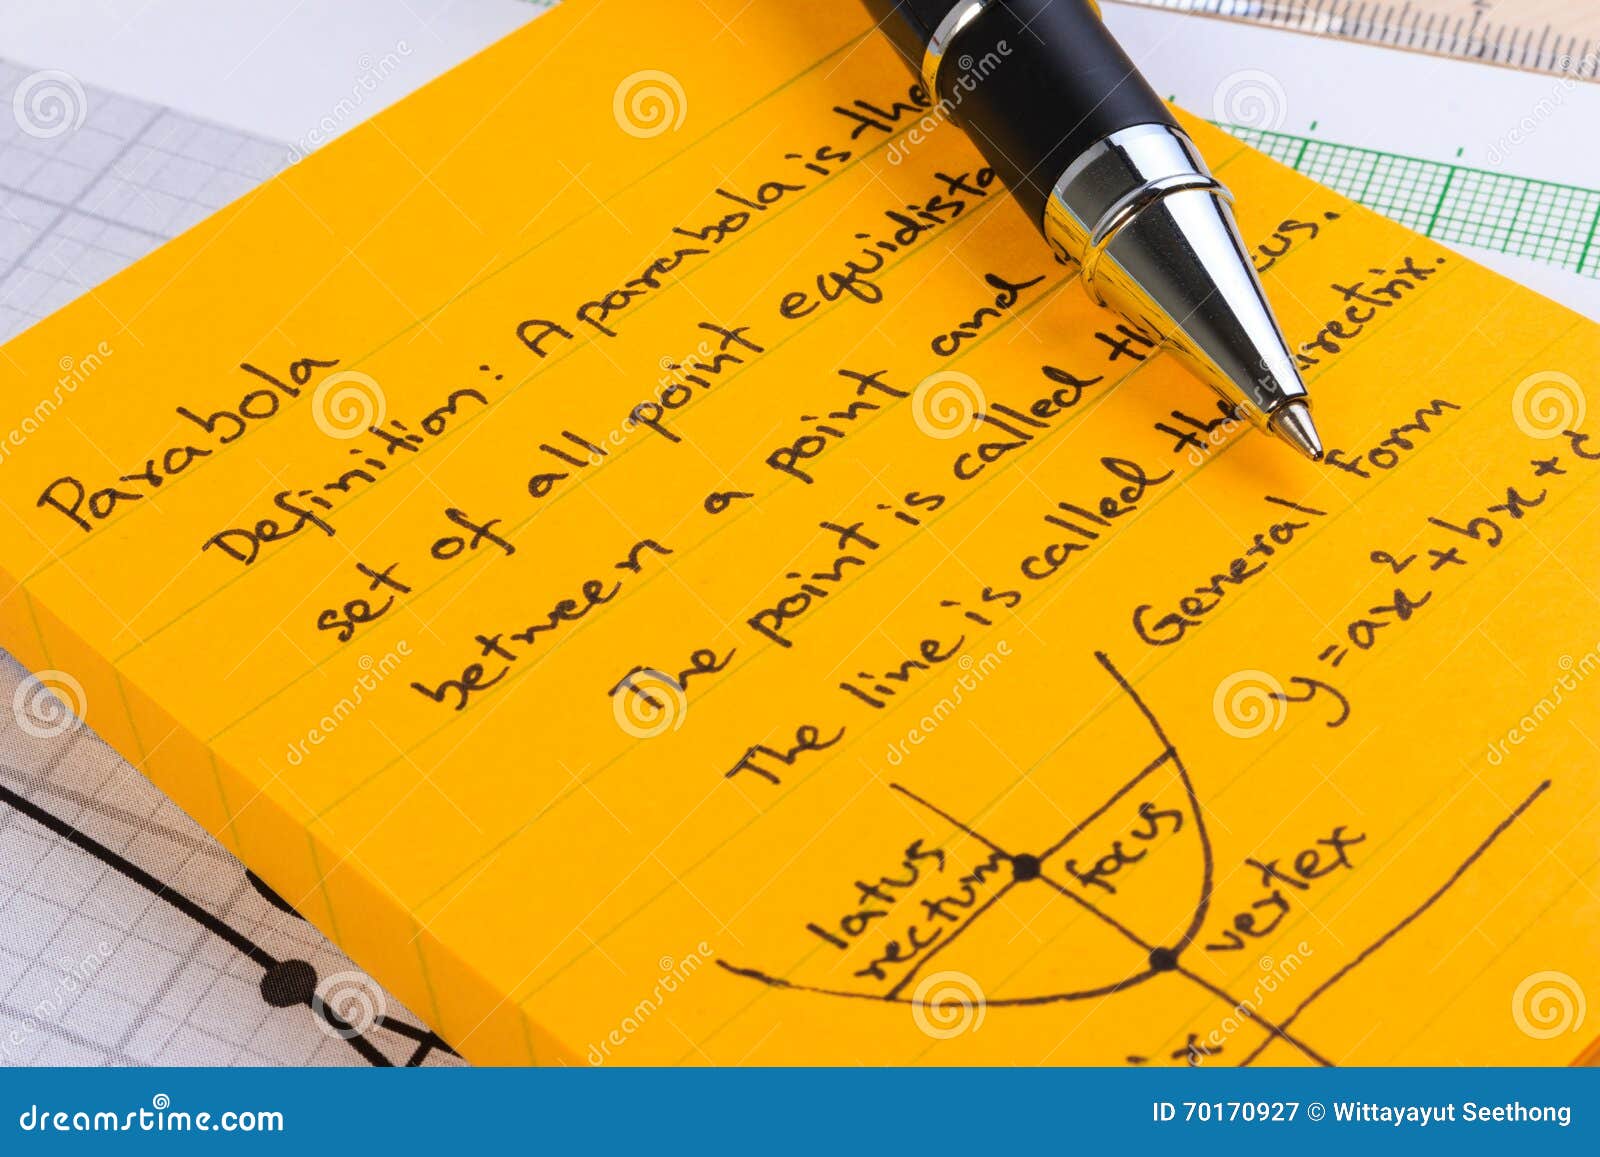 Parabola
Definition: A parabola is the
set of all point equidista
between a point and
The point is called th cus.
The line is called the irectrix.
General Form
y=ax²+bx+c
latus
rectum
focus
vertex
ix
A
dreamstime.com
ID 70170927 © Wittayayut Seethong